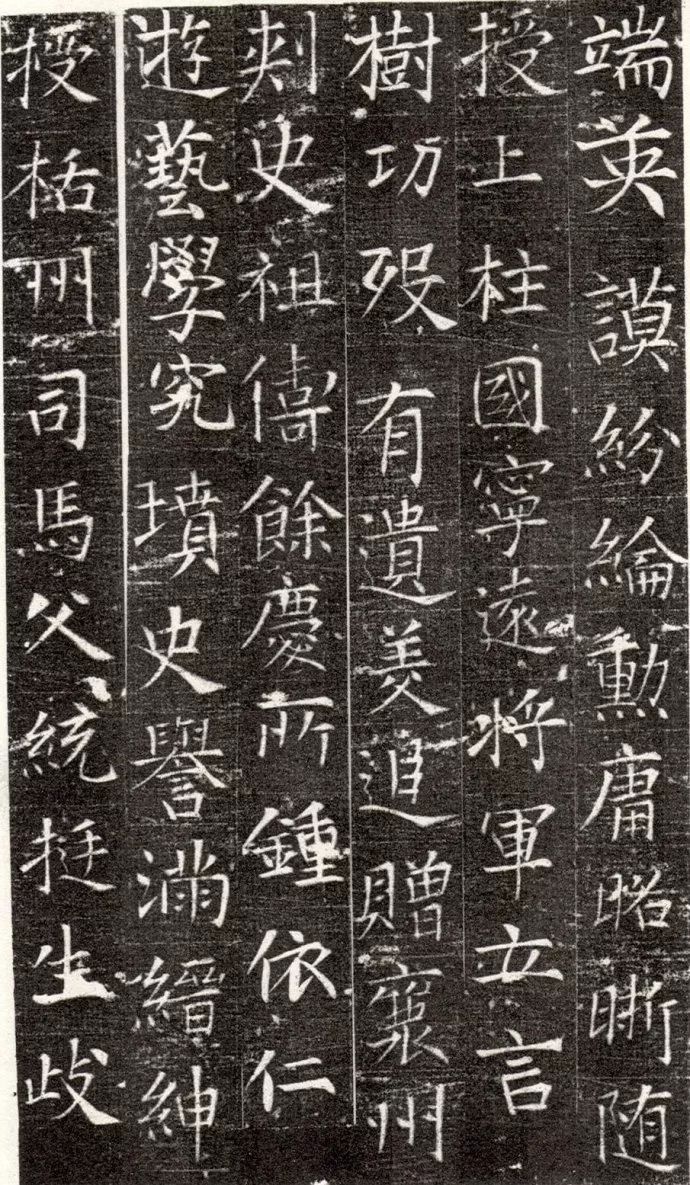 端英謨紛綸勲庸昭晰随
授上柱國寧遠将軍立言
樹功殁有遺美追贈襄州
刾史祖儔餘慶所鍾依仁
遊藝學究墳史譽滿縉紳
授栝州司馬父統挺生歧